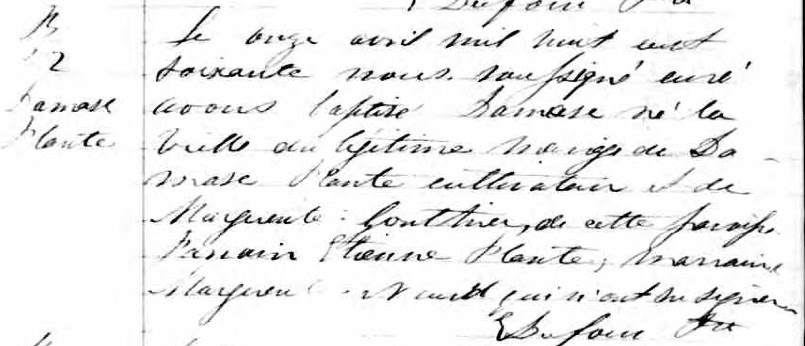 E Dufour Ptr
B
12
Damase
Plante
Le onze avril mil huit cent
soixante nous soussigné curé
avons baptisé Damase né la
veille du légitime mariage de Da-
mase Plante cultivateur et de
Marguerite Gonthier, de cette paroisse
Parrain Etienne Plante, marraine
Marguerite qui n'ont su signer
E Dufour Ptr